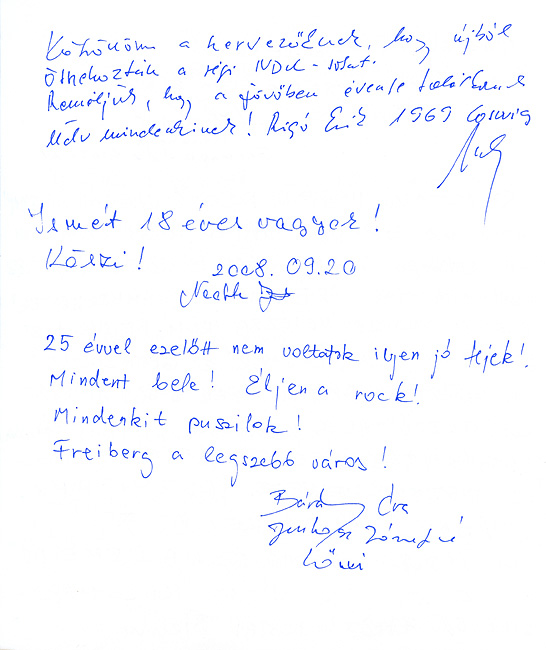 Köszönöm a szervezőknek, hogy újból
összehozták a régi NDK-sokat.
Reméljük, hogy a jövőben évente találkozunk
Üdv mindenkinek! Rigó Erik 1969 Coswig
Ismét 18 éves vagyok!
Köszi!
2008.09.20
25 évvel ezelőtt nem voltatok ilyen jó fejek!
Mindent bele! Éljen a rock!
Mindenkit puszilok!
Freiberg a legszebb város!
Éva
Józsefné